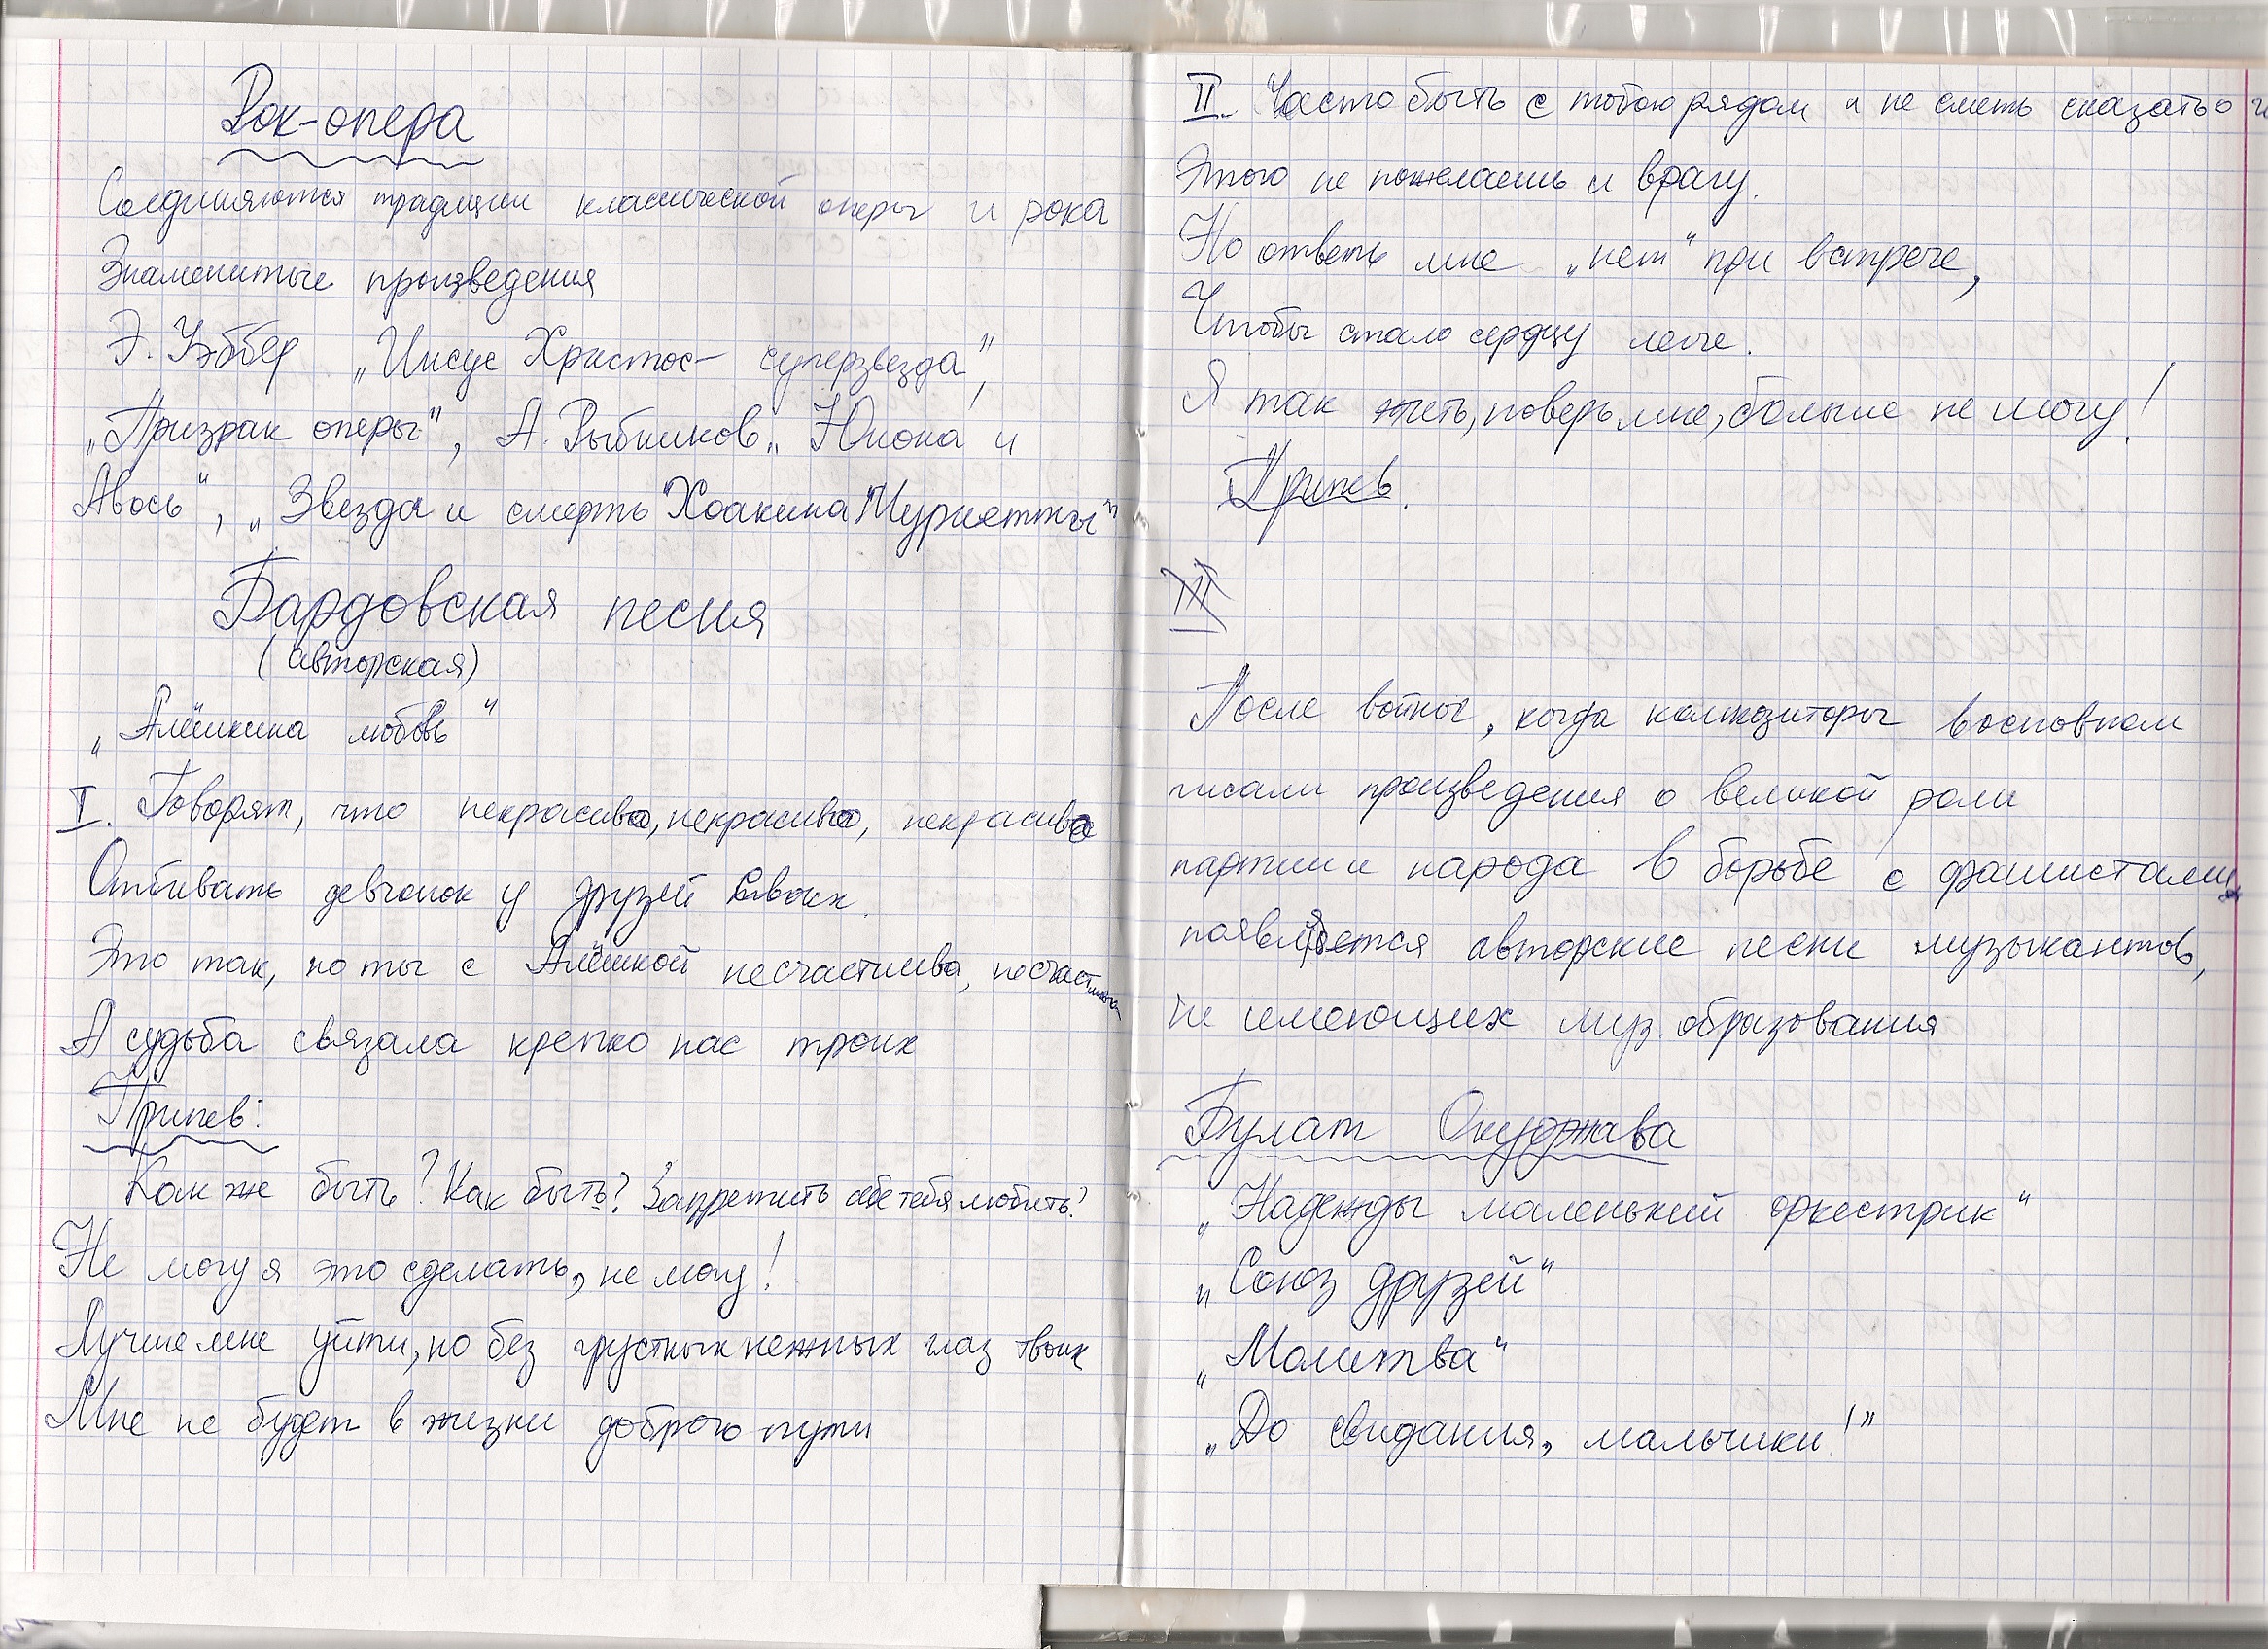 Рок-опера
Соединяются традиции классической оперы и рока
Знаменитые произведения
Э. Уэббер „Иисус Христос – суперзвезда“,
„Призрак оперы“, А. Рыбников „Юнона и
Авось“, „Звезда и смерть Хоакина Муриетты“
Бардовская песня
(авторская)
„Алёшкина любовь“
I. Говорят, что некрасиво, некрасиво, некрасиво
Отбивать девчонок у друзей своих.
Это так, но ты с Алёшкой несчастлива, несчастлива
А судьба связала крепко нас троих
Припев:
Как же быть? Как быть? Запретить себе тебя любить?
Не могу я это сделать, не могу!
Лучше мне уйти, но без грустных нежных глаз твоих
Мне не будет в жизни доброго пути
II. Часто быть с тобою рядом и не сметь сказать о
Этого не пожелаешь и врагу.
Но ответь мне „нет“ при встрече,
Чтобы стало сердцу легче.
Я так жить, поверь мне, больше не могу!
Припев.
III
После войны, когда композиторы восновном
писали произведения о великой роли
партии и народа в борьбе с фашистами,
появляются авторские песни музыкантов,
не имеющих муз. образования
Булат Окуджава
„Надежды маленький оркестрик“
„Союз друзей“
„Молитва“
„До свидания, мальчики!“